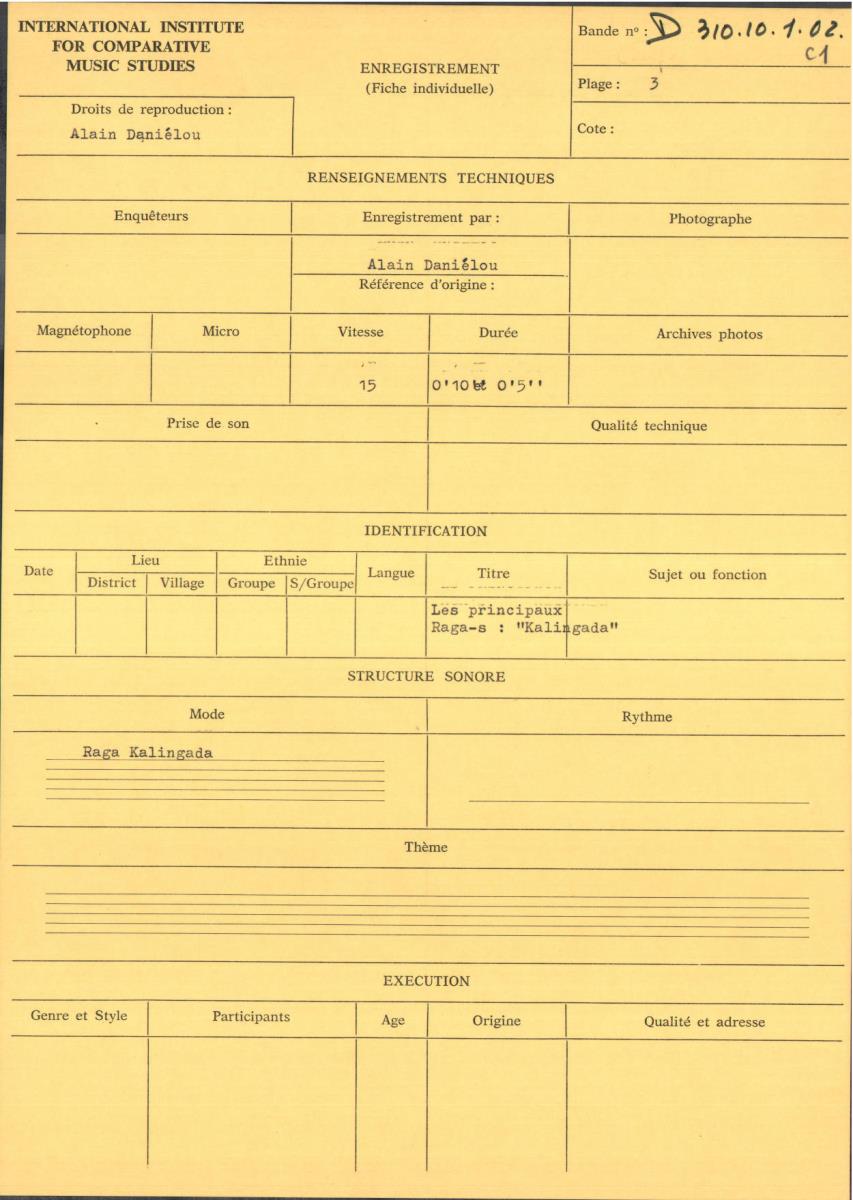 INTERNATIONAL INSTITUTE
FOR COMPARATIVE
MUSIC STUDIES
Droits de reproduction :
Alain Daniélou
ENREGISTREMENT
(Fiche individuelle)
Bande nº : D 310.10.1.02.
C1
Plage : 3
Cote :
RENSEIGNEMENTS TECHNIQUES
Enquêteurs
Enregistrement par :
Photographe
Alain Daniélou
Référence d'origine :
Magnétophone
Micro
Vitesse
Durée
Archives photos
15
0'10 et 0'5''
Prise de son
Qualité technique
IDENTIFICATION
Date
Lieu
District
Village
Ethnie
Groupe
S/Groupe
Langue
Titre
Sujet ou fonction
Les principaux
Raga-s : "Kalingada"
STRUCTURE SONORE
Mode
Rythme
Raga Kalingada
Thème
EXECUTION
Genre et Style
Participants
Age
Origine
Qualité et adresse